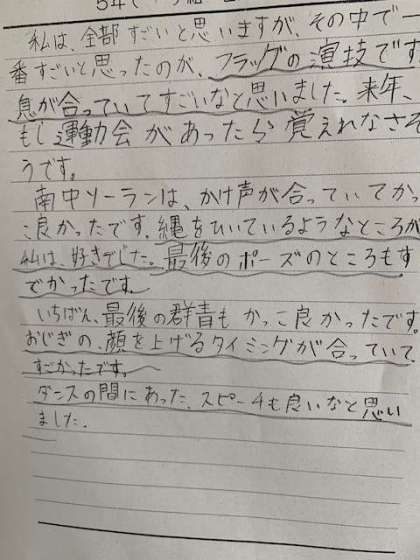 私は、全部すごいと思いますが、その中で一
番すごいと思ったのが、フラッグの演技です
息が合っていてすごいなと思いました。来年、
もし運動会があったら覚えれなさそ
うです。
南中ソーランは、かけ声が合っていてかっ
こ良かったです。縄をひいているようなところが
私は、好きでした。最後のポーズのところもす
でかったです。
いちばん、最後の群青もかっこ良かったです。
おじぎの、顔を上げるタイミングが合っていて、
すごかったです。
ダンスの間にあった、スピーチも良いなと思い
ました。